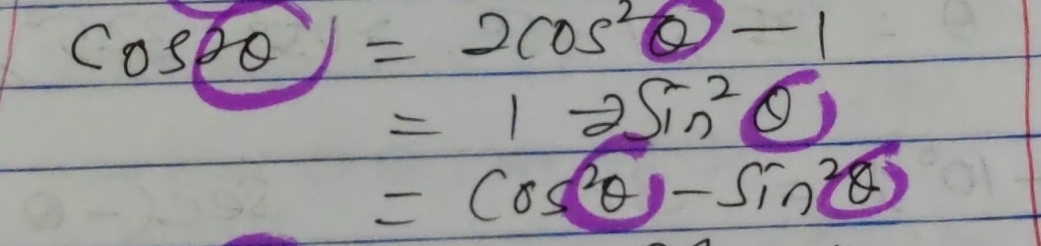 Cos2θ = 2cos²θ - 1
= 1 - 2Sin²θ
= Cos²θ - Sin²θ